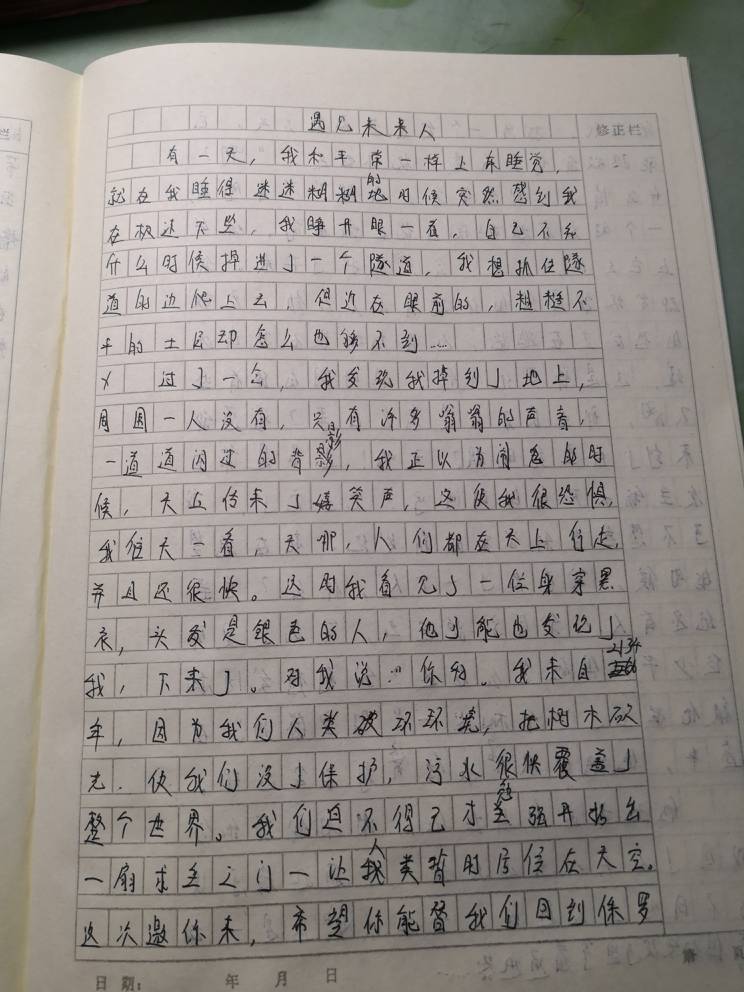 遇见未来人
修正栏
有一天，我和平常一样上床睡觉，
就在我睡得迷迷糊糊的时候突然感到我
在极速下坠，我睁开眼一看，自己不知
什么时候掉进了一个隧道，我想抓住隧
道的边爬上去，但近在眼前的，粗糙不
平的土层却怎么也够不到……
过了一会，我发现我掉到了地上，
周围一人没有，只有许多嗡嗡的声音，
一道道闪过的背影，我正以为闹鬼的时
候，天上传来了嬉笑声，这使我很恐惧，
我往天一看，天哪，人们都在天上行走，
并且还很快。这时我看见了一位身穿黑
衣，头发是银色的人，他可能也发现了
我，下来了。对我说：“你好。我来自2134
年，因为我们人类破坏环境，把树木砍
光．使我们没了保护，污水很快覆盖了
整个世界。我们迫不得已才勉强开拓出
一扇求生之门一让人类暂时居住在天空。
这次邀你来，希望你能替我们回到保罗
日期：　年　月　日